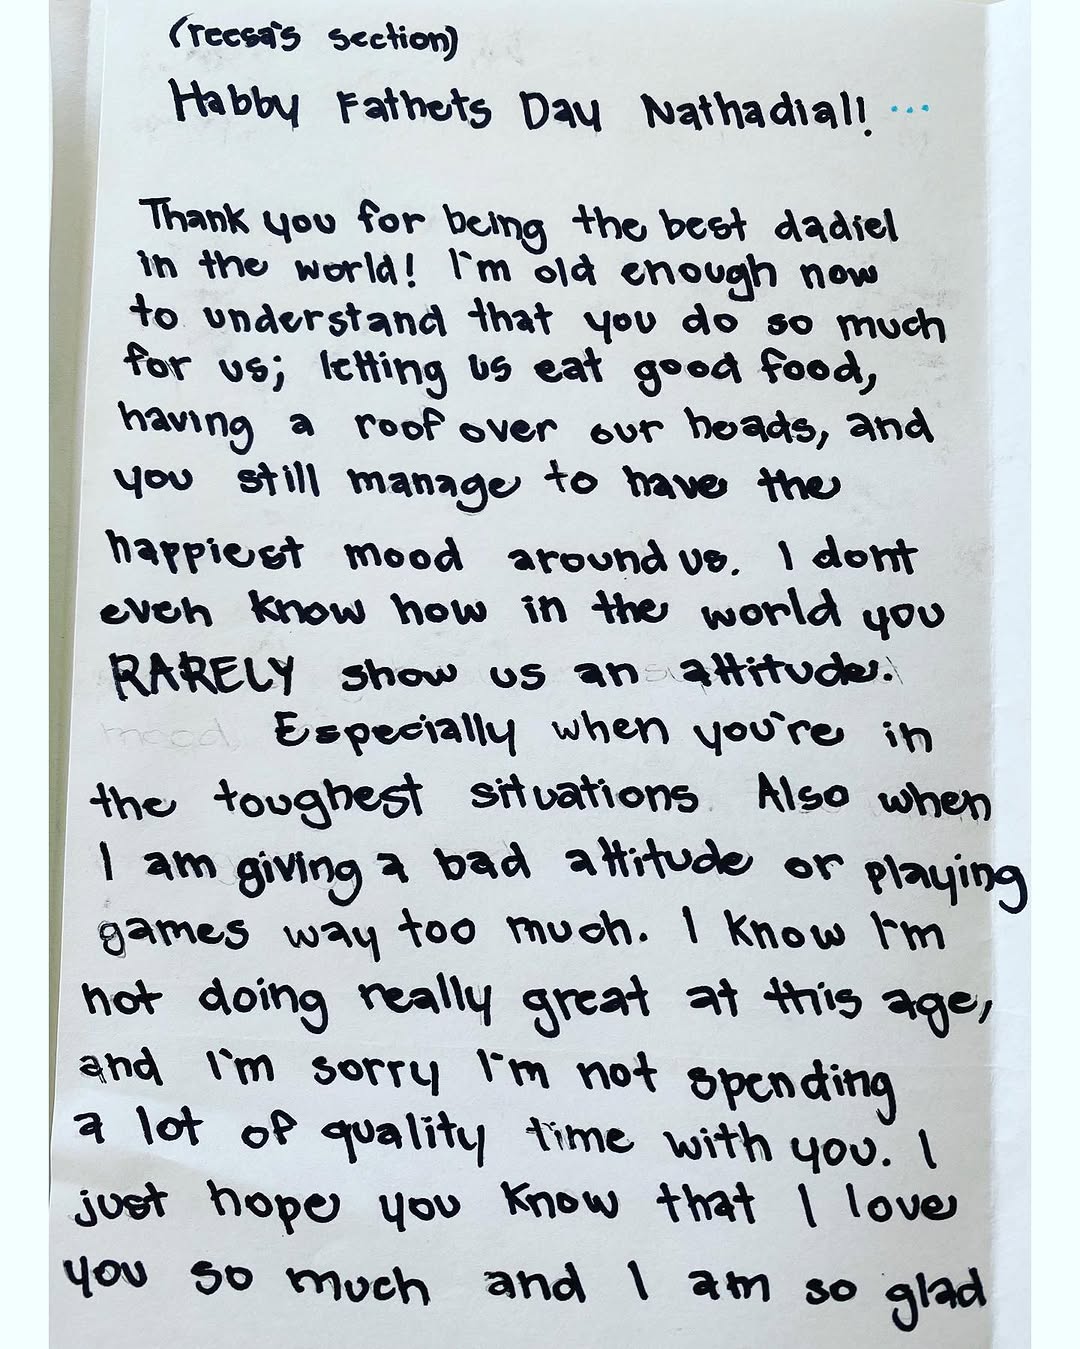 (reesa's section)
Habby Fathets Day Nathadial! ...
Thank you for being the best dadiel
in the world! I'm old enough now
to understand that you do so much
for us; letting us eat good food,
having a roof over our heads, and
you still manage to have the
happiest mood around us. I dont
even know how in the world you
RARELY show us an attitude.
mood. Especially when you're in
the toughest situations. Also when
I am giving a bad attitude or playing
games way too much. I know I'm
not doing really great at this age,
and I'm sorry I'm not spending
a lot of quality time with you. I
just hope you know that I love
you so much and I am so glad